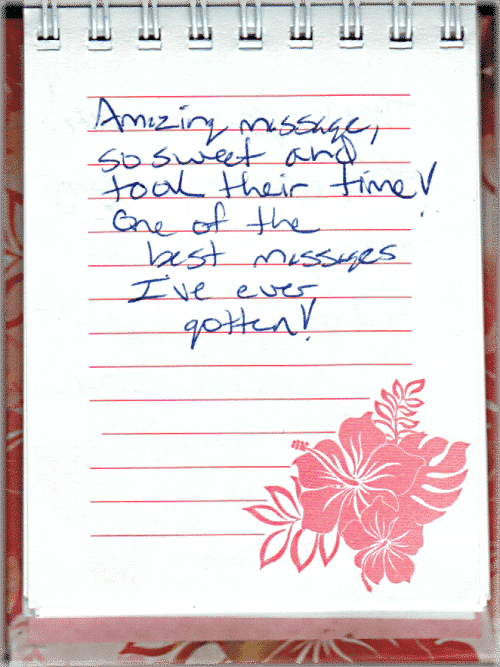 Amazing massage,
so sweet and
took their time!
One of the
best massages
I've ever
gotten!